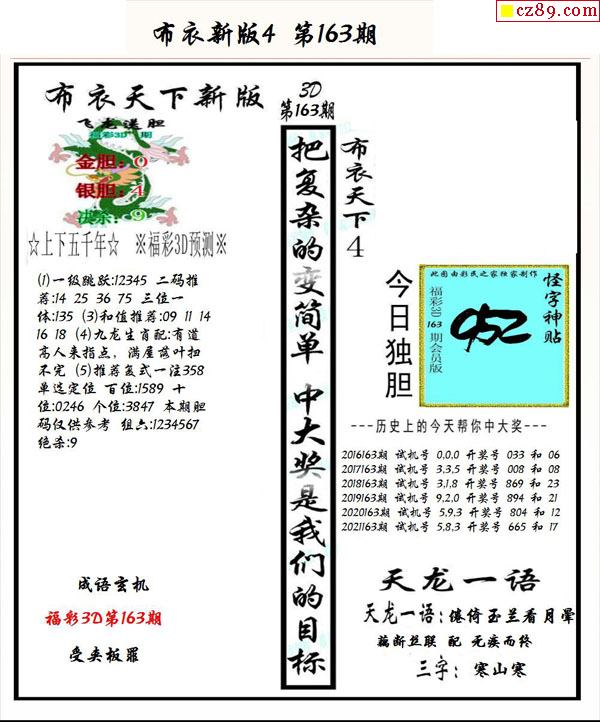 cz89.com
布衣新版4 第163期
布衣天下新版
飞龙送胆
福彩3D 期
金胆：0
银胆：4
决杀：9
☆上下五千年☆ ※福彩3D预测※
(1)一级跳跃:12345 二码推
荐:14 25 36 75 三位一
体:135 (3)和值推荐:09 11 14
16 18 (4)九龙生肖配:有道
高人来指点，满屋落叶扫
不完 (5)推荐复式一注358
单选定位 百位:1589 十
位:0246 个位:3847 本期胆
码仅供参考 组六:1234567
绝杀:9
成语玄机
福彩3D第163期
受夹板罪
3D
第163期
把复杂的变简单 中大奖是我们的目标
布衣天下4
今日独胆
此图由彩民之家独家制作
怪字神贴
福彩3D 163 期会员版
052
---历史上的今天帮你中大奖---
2016163期 试机号 0.0.0 开奖号 033 和 06
2017163期 试机号 3.3.5 开奖号 008 和 08
2018163期 试机号 3.1.8 开奖号 869 和 23
2019163期 试机号 9.2.0 开奖号 894 和 21
2020163期 试机号 5.9.3 开奖号 804 和 12
2021163期 试机号 5.8.3 开奖号 665 和 17
天龙一语
天龙一语：倦倚玉兰看月晕
藕断丝联 配 无疾而终
三字：寒山寒